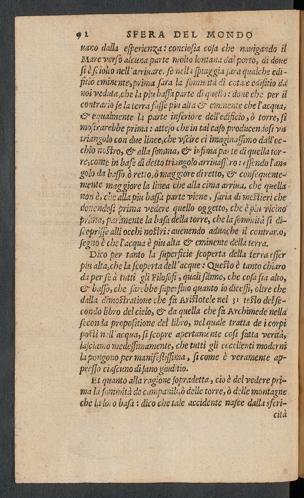 92 SFERA DEL MONDO
nano dalla esperienza: conciosia cosa che nauigando il
Mare verso alcuna parte molto lontana dal porto, di doue
si è sciolto nell'arriuare, se nella spiaggia sara qualche edi-
fitio eminente, prima sara la sommità di cotale edifitio da
noi veduta, che la piu bassa parte di quello: doue che per il
contrario se la terra fusse piu alta & eminente che l'acqua,
& egualmente la parte inferiore dell'edificio, ò torre, si
mostrarebbe prima: atteso che in tal caso producendosi vn
triangolo con due linee, che vscire ci imaginassimo dall'oc-
chio nostro, & alla somma, & infima parte di quella tor-
re, come in base di detto triangolo arriuassero: essendo l'an-
golo da basso ò retto, ò maggiore di retto, & conseguente-
mente maggiore la linea che alla cima arriua, che quella
non è, che alla piu bassa parte viene, saria di mestieri che
douendosi prima vedere quello oggetto, che è piu vicino
prima, parimente la basa della torre, che la sommità si di-
scoprisse alli occhi nostri: auenendo adunche il contrario,
segno è che l'acqua è piu alta & eminente della terra.
Dico per tanto la superficie scoperta della terra esser
piu alta, che la scoperta dell'acque: Questo è tanto chiaro
da per se à tutti gli Filosofi, qualissimo, che cosa sia alto,
& basso, che sarebbe superfluo quanto io dicessi, oltre che
dalla dimostratione che fa Aristotele nel 31 testo del se-
condo libro del cielo, & da quella che fa Archimede nella
seconda propositione del libro, nel quale tratta de i corpi
posti nell'acqua, si scopre apertamente cosi fatta verità,
lasciamo medesimamente, che tutti gli eccellenti moderni
la pongono per manifestissima, si come è veramente ap-
presso ciascuno di sano giuditio.
Et quanto alla ragione sopradetta, cio è del vedere pri-
ma la sommità de campanili, ò delle torre, ò delle montagne
che la loro basa: dico che tale accidente nasce dalla sferi-
cità